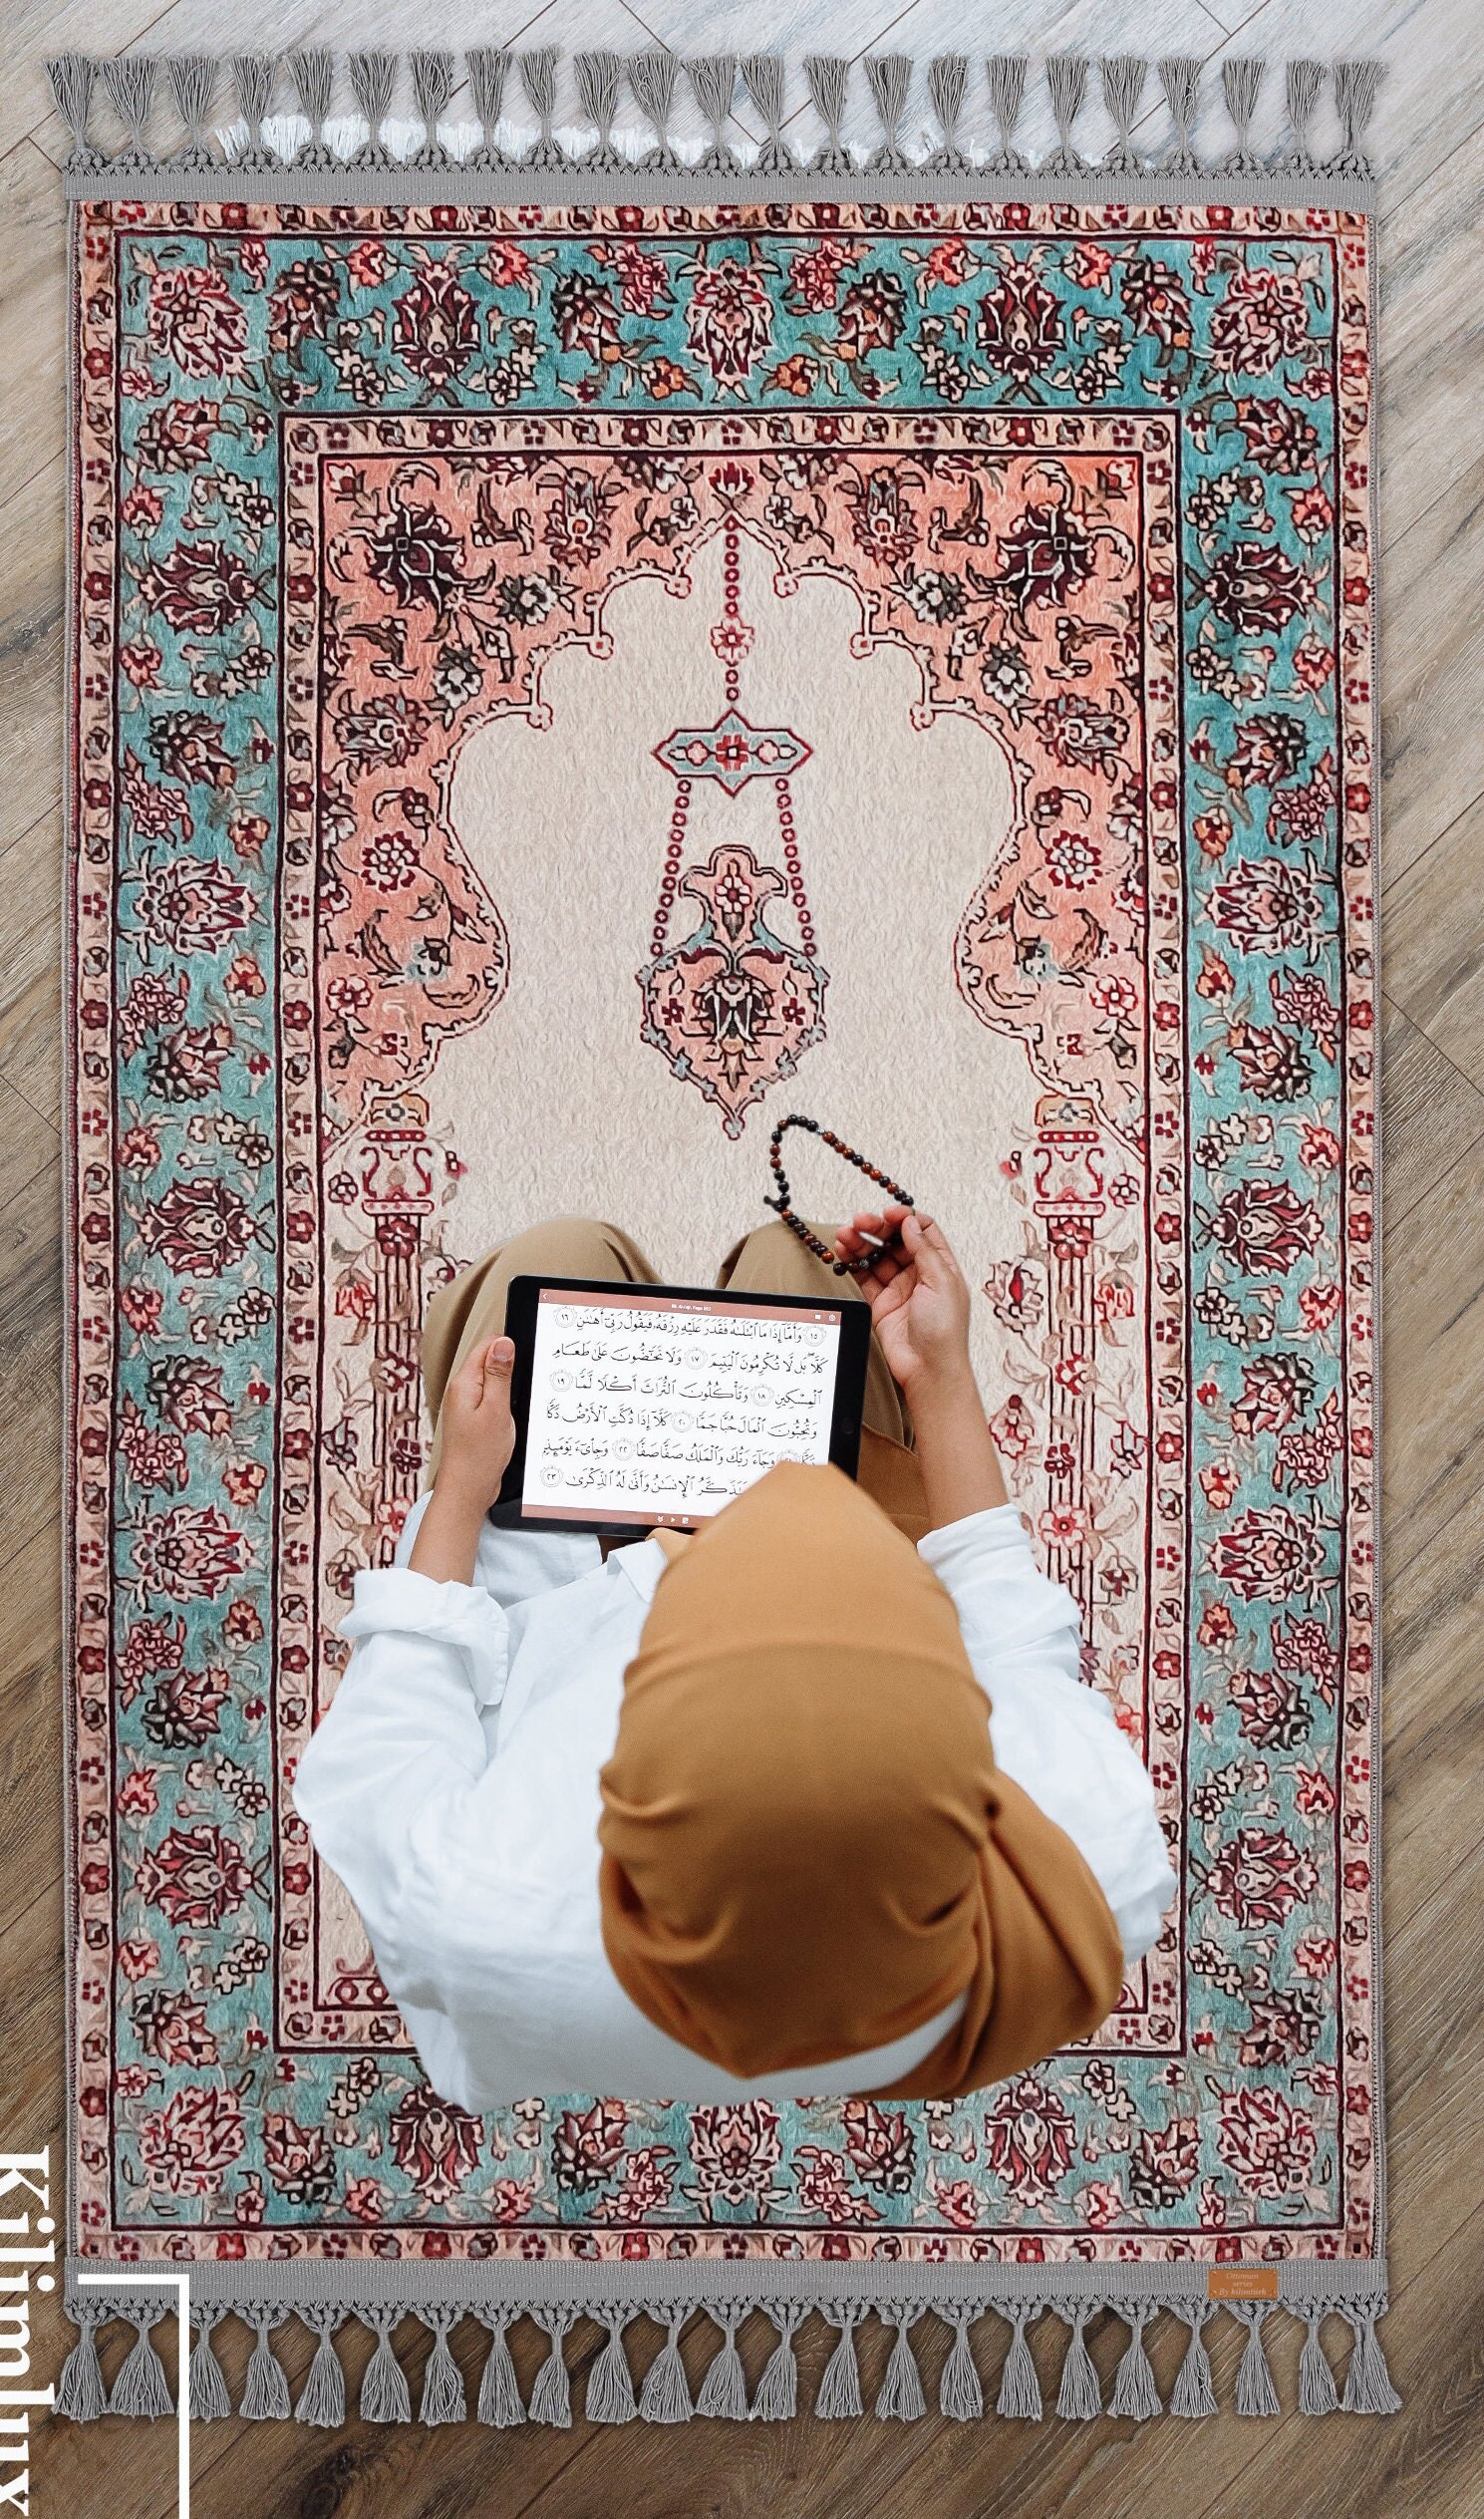 89. Al-Fajr, Page 593
١٥ وَأَمَّآ إِذَا مَا ٱبْتَلَىٰهُ فَقَدَرَ عَلَيْهِ رِزْقَهُۥ فَيَقُولُ رَبِّىٓ أَهَٰنَنِ ١٦
كَلَّا ۖ بَل لَّا تُكْرِمُونَ ٱلْيَتِيمَ ١٧ وَلَا تَحَٰٓضُّونَ عَلَىٰ طَعَامِ
ٱلْمِسْكِينِ ١٨ وَتَأْكُلُونَ ٱلتُّرَاثَ أَكْلًا لَّمًّا ١٩
وَتُحِبُّونَ ٱلْمَالَ حُبًّا جَمًّا ٢٠ كَلَّآ إِذَا دُكَّتِ ٱلْأَرْضُ دَكًّا
دَكًّا وَجَآءَ رَبُّكَ وَٱلْمَلَكُ صَفًّا صَفًّا ٢٢ وَجِا۟ىٓءَ يَوْمَئِذٍۭ
ٱلْإِنسَٰنُ وَأَنَّىٰ لَهُ ٱلذِّكْرَىٰ ٢٣
Ottoman
series
By kilimtürk
Kilimlux